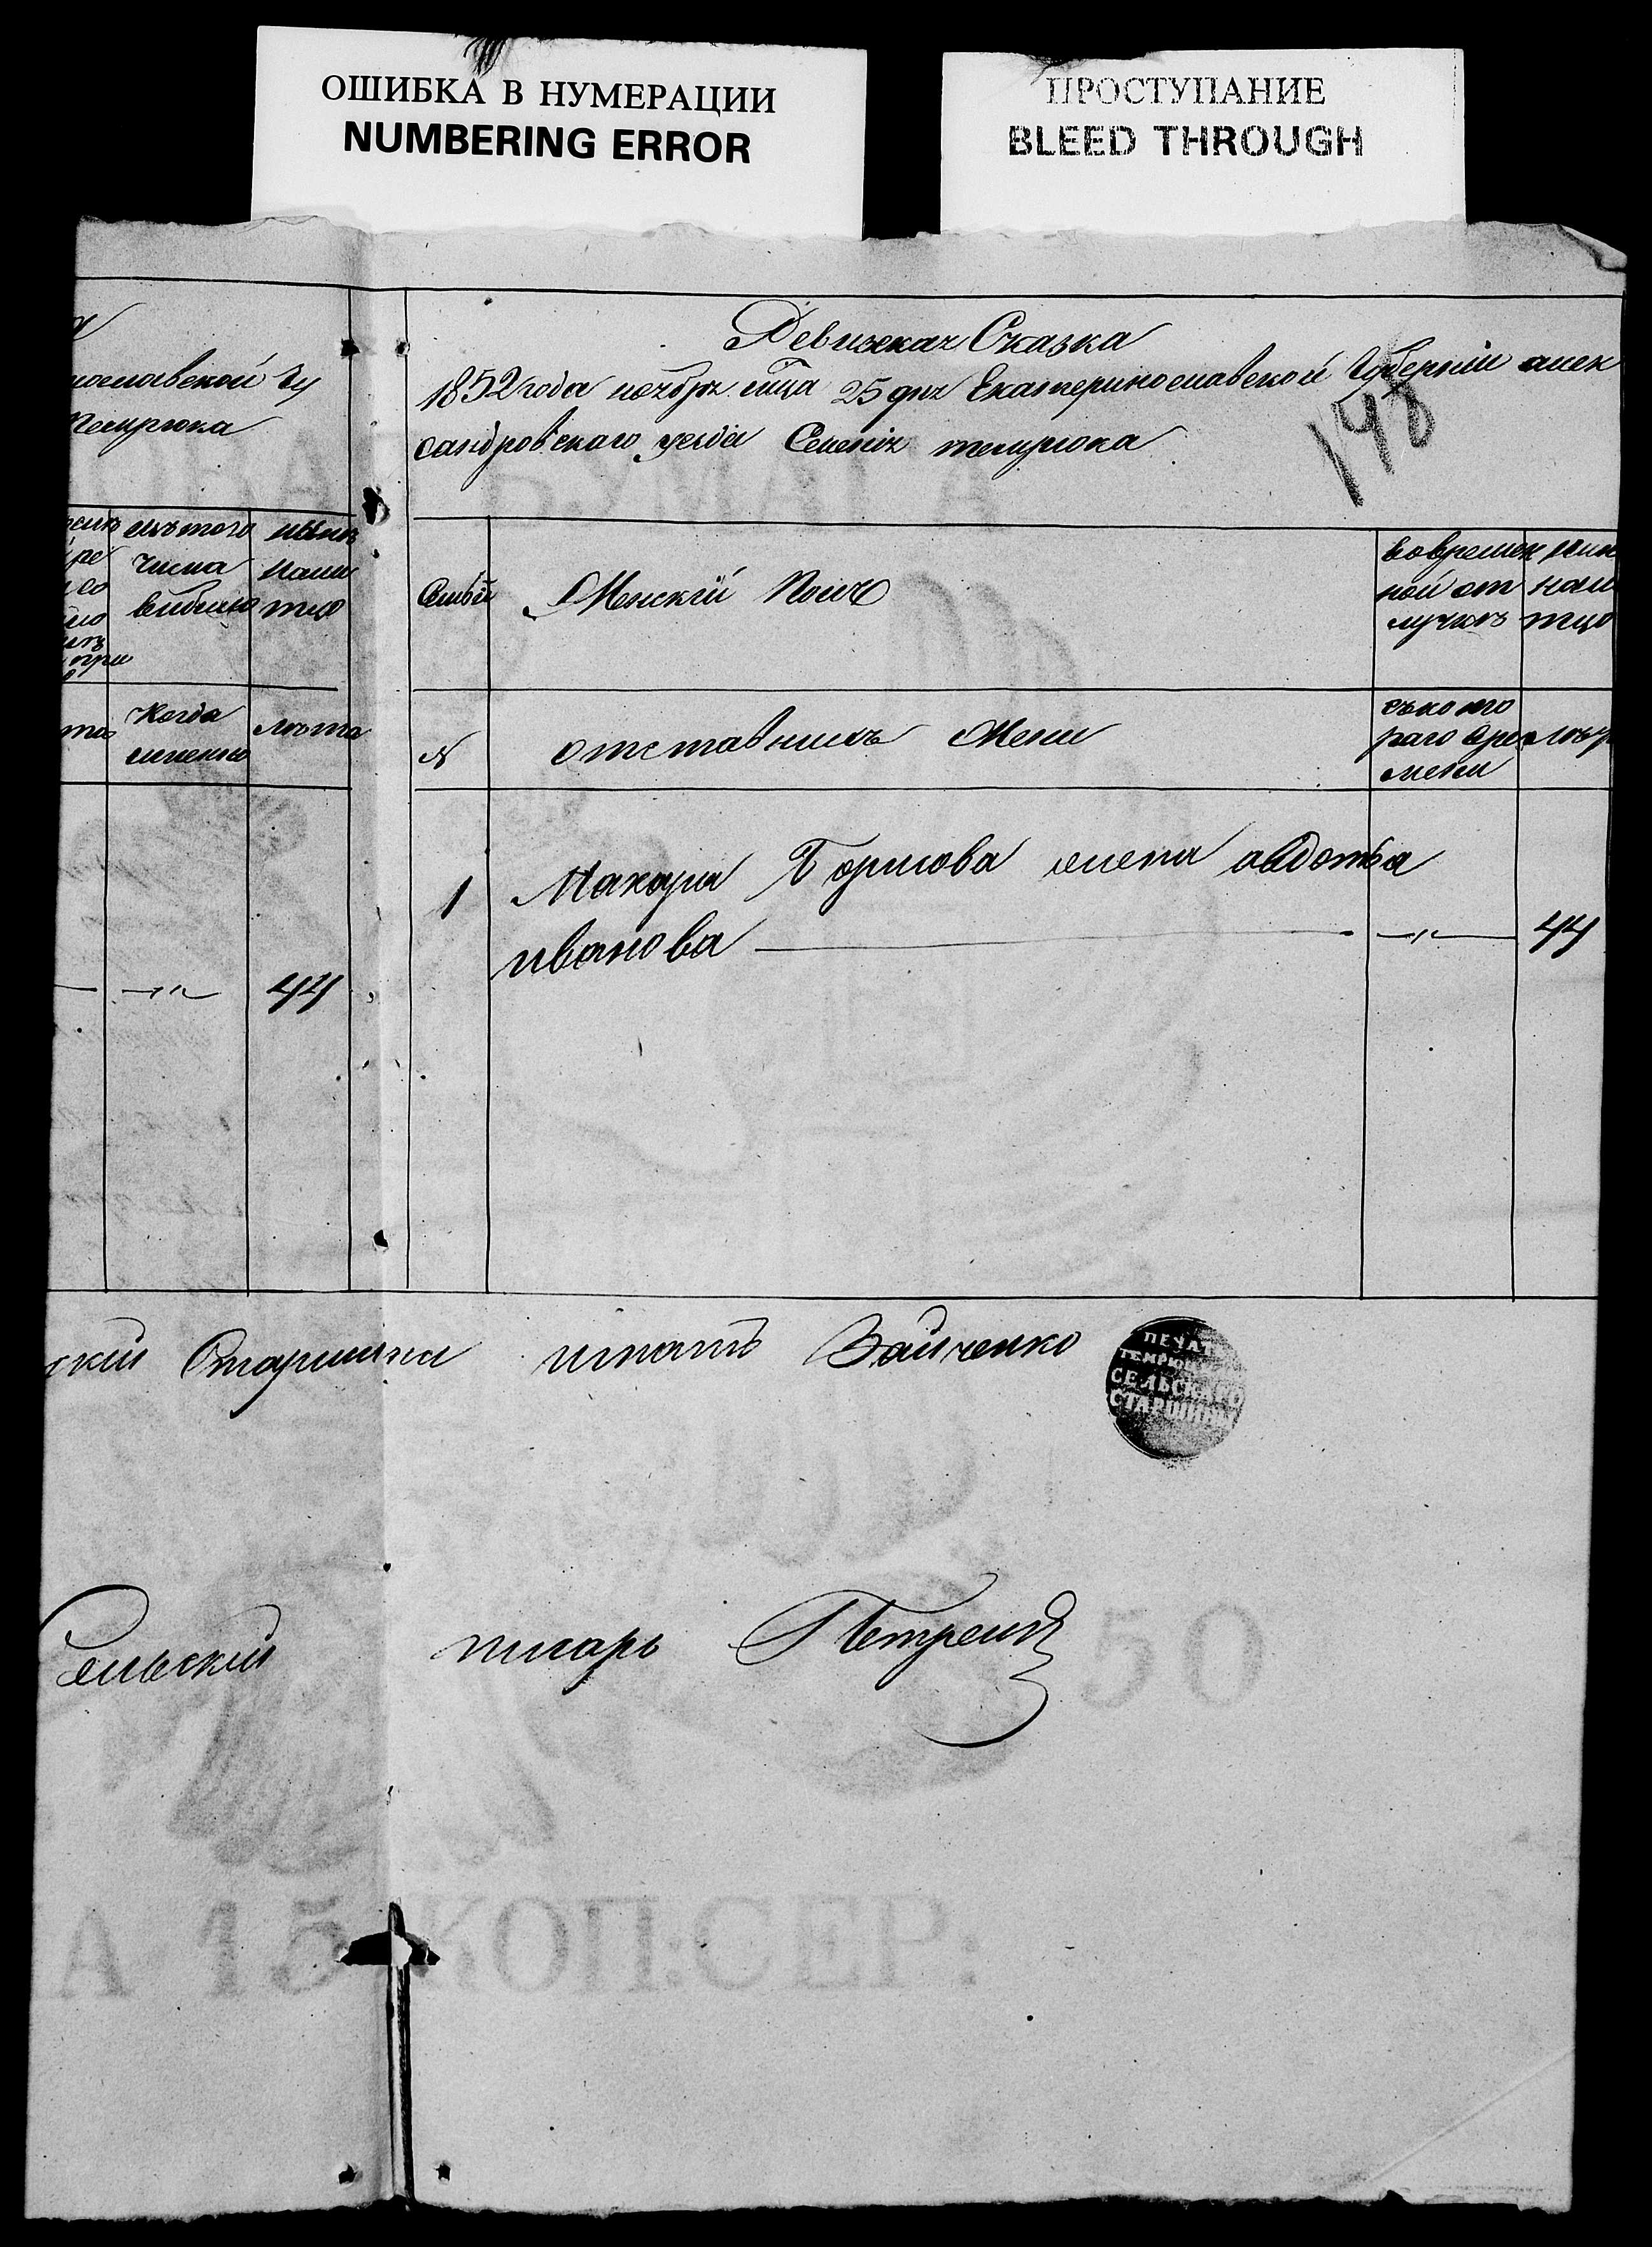 ОШИБКА В НУМЕРАЦИИ
NUMBERING ERROR
ПРОСТУПАНИЕ
BLEED THROUGH
нославской гу
темрюка
изъ того
числа
выбыло
ныне
нали
тцо
Когда
именно
лета
44
Ревижская Сказка
1852 года ноября мца 25 дня Екатеринославской Губерніи алек
сандровскаго уезда Селенія темрюка
198
Семьи
Женскій Полъ
вовремен
ной от
лучкъ
нали
тцо
N
отставникъ Жени
съкото
раго вре
мени
1
Макара Борисова жена авдотья
иванова
44
ский Старшина игнатъ Зайченко
ПЕЧАТ
ТЕМРЮК
СЕЛЬСКАГО
СТАРШИНЫ
Сельский писарь Петренко
50
А 15 КОП:СЕР: